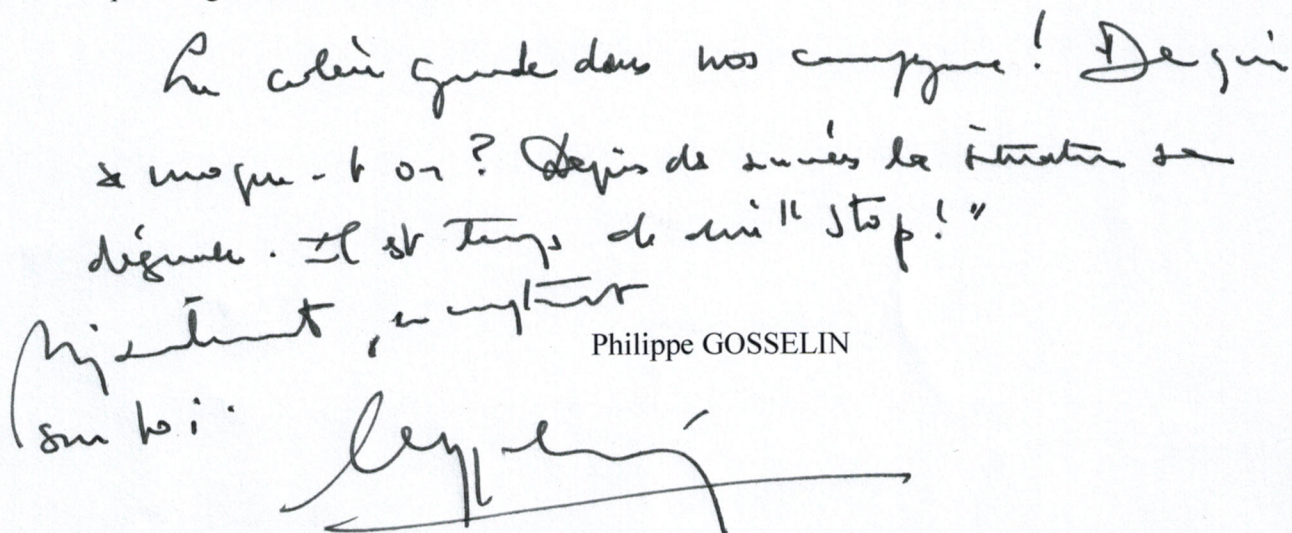 La colère gronde dans nos campagnes ! De qui
se moque-t-on ? Depuis des années la situation se
dégrade. Il est temps de dire "stop !"
, en comptant
Philippe GOSSELIN
sur toi.